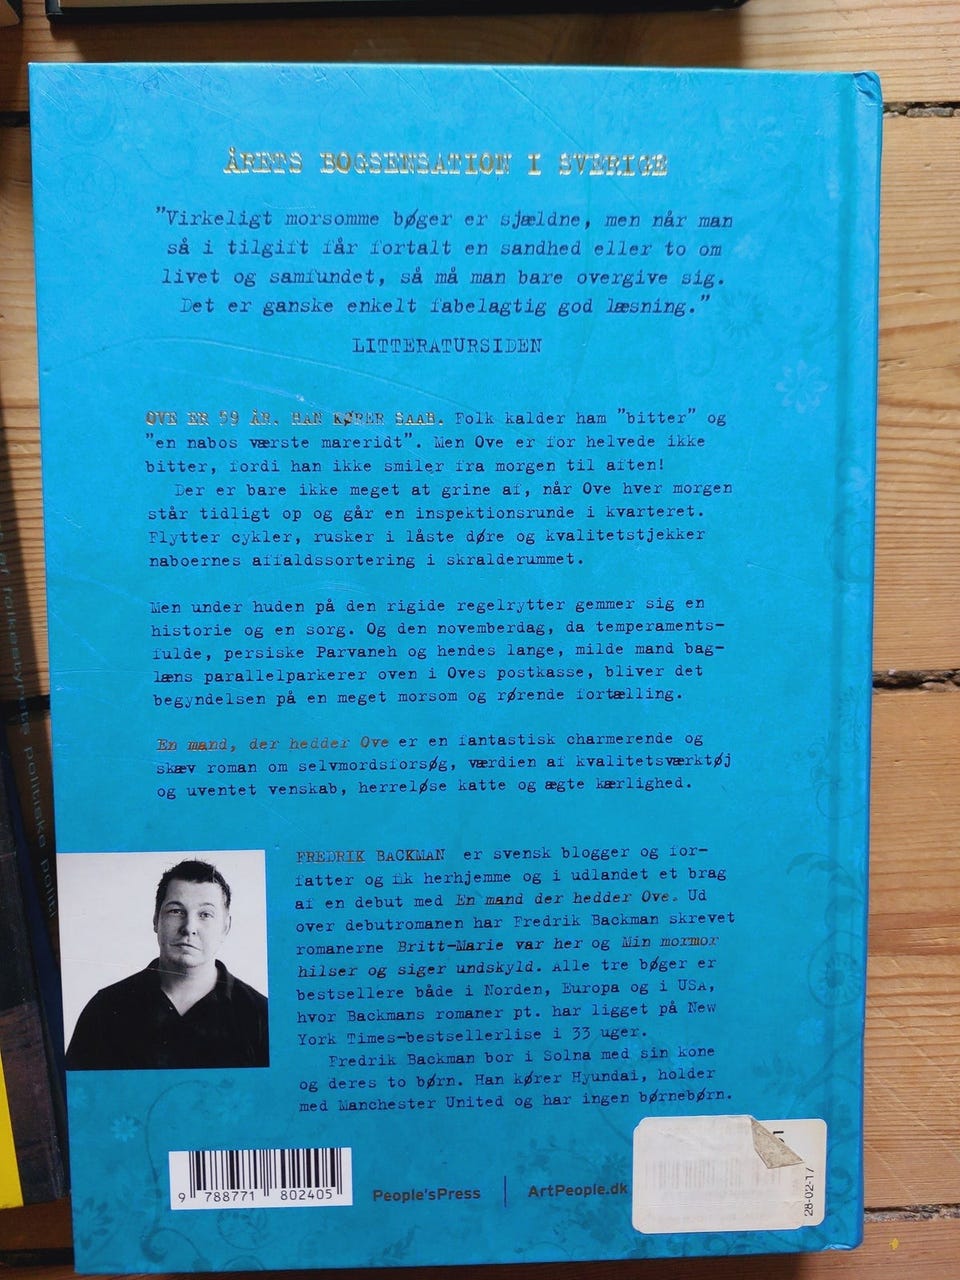 ÅRETS BOGSENSATION I SVERIGE
"Virkeligt morsomme bøger er sjældne, men når man
så i tilgift får fortalt en sandhed eller to om
livet og samfundet, så må man bare overgive sig.
Det er ganske enkelt fabelagtig god læsning."
LITTERATURSIDEN
OVE ER 59 ÅR. HAN KØRER SAAB. Folk kalder ham "bitter" og
"en nabos værste mareridt". Men Ove er for helvede ikke
bitter, fordi han ikke smiler fra morgen til aften!
Der er bare ikke meget at grine af, når Ove hver morgen
står tidligt op og går en inspektionsrunde i kvarteret.
Flytter cykler, rusker i låste døre og kvalitetstjekker
naboernes affaldssortering i skralderummet.
Men under huden på den rigide regelrytter gemmer sig en
historie og en sorg. Og den novemberdag, da temperaments-
fulde, persiske Parvaneh og hendes lange, milde mand bag-
læns parallelparkerer oven i Oves postkasse, bliver det
begyndelsen på en meget morsom og rørende fortælling.
En mand, der hedder Ove er en fantastisk charmerende og
skæv roman om selvmordsforsøg, værdien af kvalitetsværktøj
og uventet venskab, herreløse katte og ægte kærlighed.
FREDRIK BACKMAN er svensk blogger og for-
fatter og fik herhjemme og i udlandet et brag
af en debut med En mand der hedder Ove. Ud
over debutromanen har Fredrik Backman skrevet
romanerne Britt-Marie var her og Min mormor
hilser og siger undskyld. Alle tre bøger er
bestsellere både i Norden, Europa og i USA,
hvor Backmans romaner pt. har ligget på New
York Times-bestsellerlise i 33 uger.
Fredrik Backman bor i Solna med sin kone
og deres to børn. Han kører Hyundai, holder
med Manchester United og har ingen børnebørn.
9 788771 802405
People'sPress | ArtPeople.dk
28-02-17
folkestyrets politiske politi